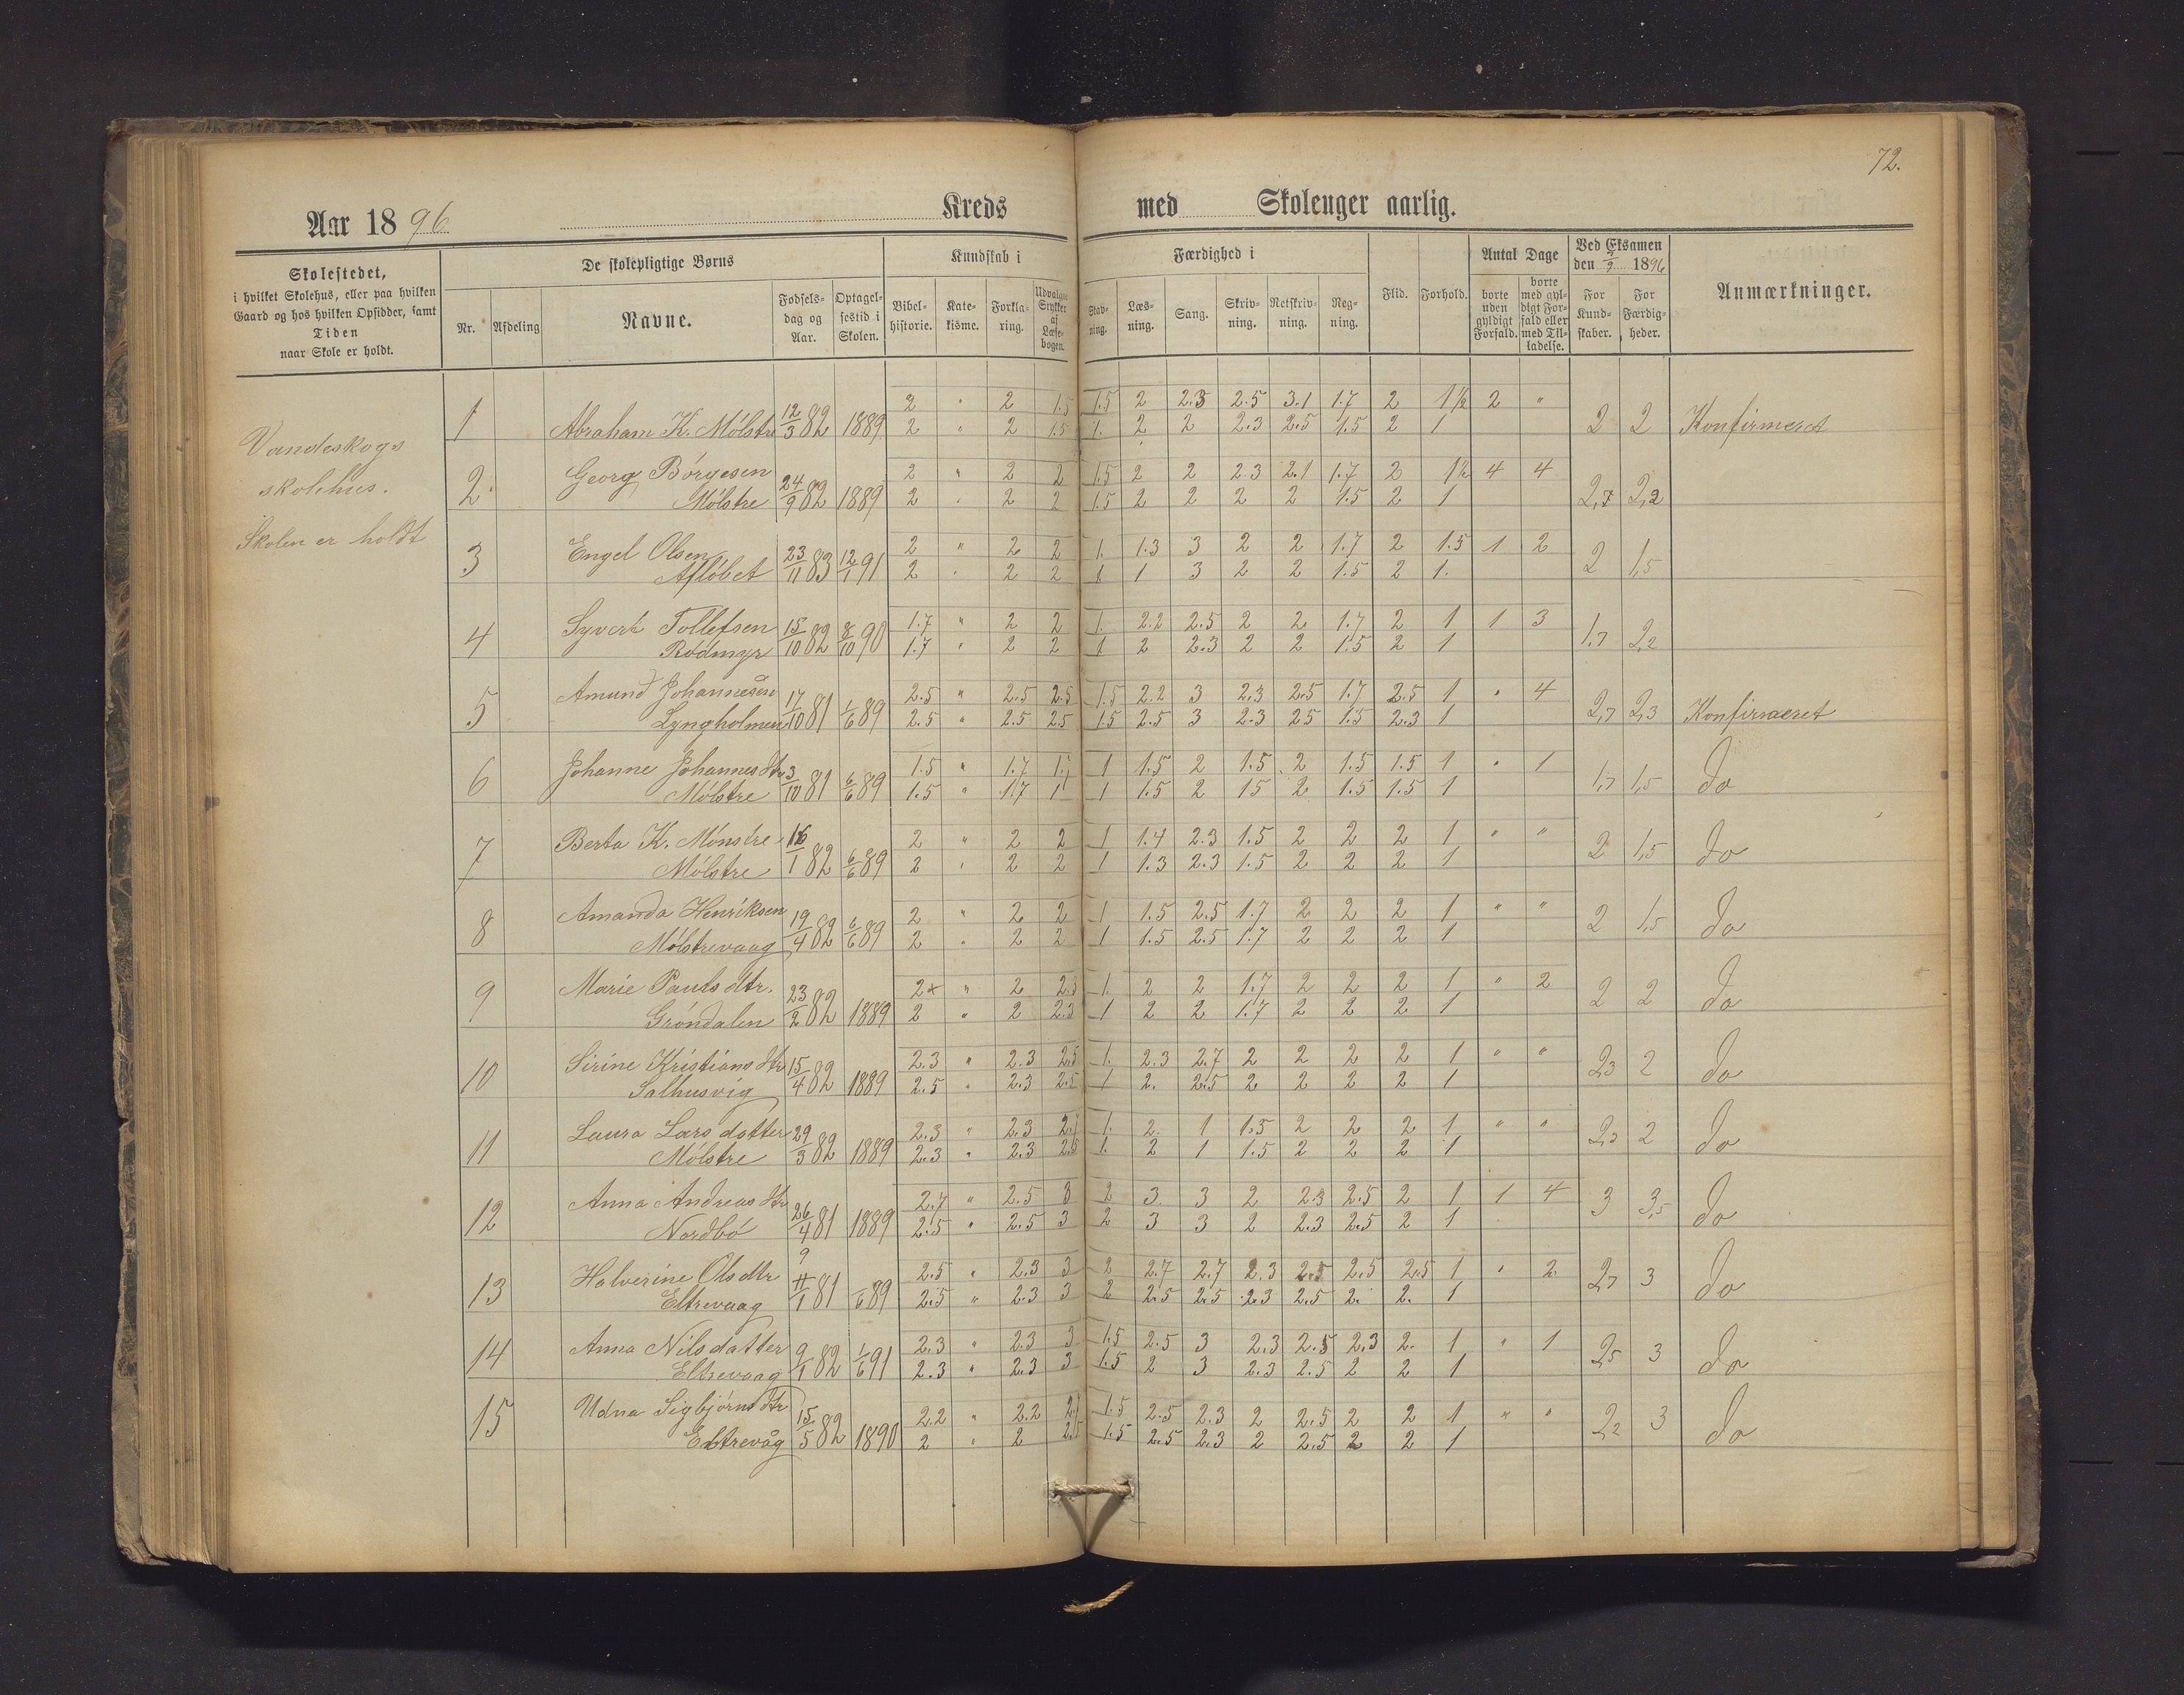 72.
Aar 1896 Kreds med Skolenger aarlig.
Skolestedet, i hvilket Skolehus, eller paa hvilken Gaard og hos hvilken Opsidder, samt Tiden naar Skole er holdt.
De skolepligtige Børns
Nr. Afdeling Navne. Fødselsdag og Aar. Optagelsestid i Skolen.
Kundskab i
Bibelhistorie. Katekisme. Forklaring. Udvalgte Stykker af Læsebogen.
Færdighed i
Stavning. Læsning. Sang. Skrivning. Retskrivning. Regning.
Flid. Forhold.
Antal Dage
borte uden gyldigt Forfald. borte med gyldigt Forfald eller med Tilladelse.
Ved Eksamen den 2/9 1896
For Kundskaber. For Færdigheder.
Anmærkninger.
Vandeskogs
skolehus.
Skolen er holdt
2 " 2 1.5 1.5 2 2.3 2.5 3.1 1.7 2 1½ 2 "
1 Abraham K. Mölstre 12/3 82 1889 2 " 2 1.5 1. 2 2 2.3 2.5 1.5 2 1 2 2 Konfirmeret
Georg Börgesen 2 " 2 2 1.5 2 2 2.3 2.1 1.7 2 1½ 4 4
2 Mölstre 24/9 82 1889 2 " 2 2 1.5 2 2 2 2 1.5 2 1 2,7 2,2
Engel Olsen 2 " 2 2 1. 1.3 3 2 2 1.7 2 1.5 1 2
3 Aflöbet 23/11 83 12/1 91 2 " 2 2 1 1 3 2 2 1.5 2 1. 2 1,5
Syvert Tollefsen 1.7 " 2 2 1. 2.2 2.5 2 2 1.7 2 1 1 3
4 Rödmyr 15/10 82 8/10 90 1.7 " 2 2 1 2 2.3 2 2 1.5 2 1 1,7 2,2
Amund Johannesen 2.5 " 2.5 2.5 1.5 2.2 3 2.3 2.5 1.7 2.5 1 " 4
5 Lyngholmen 17/10 81 1/6 89 2.5 " 2.5 2.5 1.5 2.5 3 2.3 2.5 1.5 2.3 1 2,7 2,3 Konfirmeret
Johanne Johannesdtr 1.5 " 1.7 1.7 1 1.5 2 1.5 2 1.5 1.5 1 " 1
6 Mölstre 3/10 81 6/6 89 1.5 " 1.7 1 1 1.5 2 15 2 1.5 1.5 1 1,7 1,5 do
Berta K. Mönstre 2 " 2 2 1 1.4 2.3 1.5 2 2 2 1 " "
7 Mölstre 16/1 82 6/6 89 2 " 2 2 1 1.3 2.3 1.5 2 2 2 1 2 1,5 do
Amanda Henriksen 2 " 2 2 1 1.5 2.5 1.7 2 2 2 1 " "
8 Mölstrevaag 19/4 82 6/6 89 2 " 2 2 1 1.5 2.5 1.7 2 2 2 1 2 1,5 do
Marie Paulsdtr. 2 " 2 2.3 1. 2 2 1.7 2 2 2 1 " 2
9 Gröndalen 23/2 82 1889 2 " 2 2.3 1 2 2 1.7 2 2 2 1 2 2 do
Sirine Kristiansdtr 2.3 " 2.3 2.5 1. 2.3 2.7 2 2 2 2 1 " "
10 Salhusvig 15/4 82 1889 2.5 " 2.3 2.5 1 2. 2.5 2 2 2 2 1 2,3 2 do
Laura Larsdatter 2.3 " 2.3 1. 2. 1 1.5 2 2 2 1 " "
11 Mölstre 29/3 82 1889 2.3 " 2.3 2.5 1. 2 1 1.5 2 2 2 1 2,3 2 do
Anna Andreasdtr 2.7 " 2.5 3 2 3 3 2 2.3 2.5 2 1 1 4
12 Nordbö 26/4 81 1889 2.5 " 2.5 3 2 3 3 2 2.3 2.5 2 1 3 3,5 do
Halverine Olsdtr 2.5 " 2.3 3 2 2.7 2.7 2.3 2.5 2.5 2.5 1 " 2
13 Eltrevaag 11/1 81 /6 89 2.5 " 2.3 3 2 2.5 2.5 2.3 2.5 2. 2. 1 2,7 3 do
Anna Nilsdatter 2.3 " 2.3 3 1.5 2.5 3 2.3 2.5 2.3 2. 1 " 1
14 Eltrevaag 9/1 82 1/6 91 2.3 " 2.3 3 1.5 2 3 2.3 2.5 2 2 1 2,5 3 do
Udna Sigbjörnsdtr 2.2 " 2.2 1.5 2.5 2.3 2 2.5 2 2 1 " "
15 Eltrevåg 15/5 82 1890 2 " 2 2.5 1.5 2.5 2.3 2 2.5 2 2 1 2,2 3 do